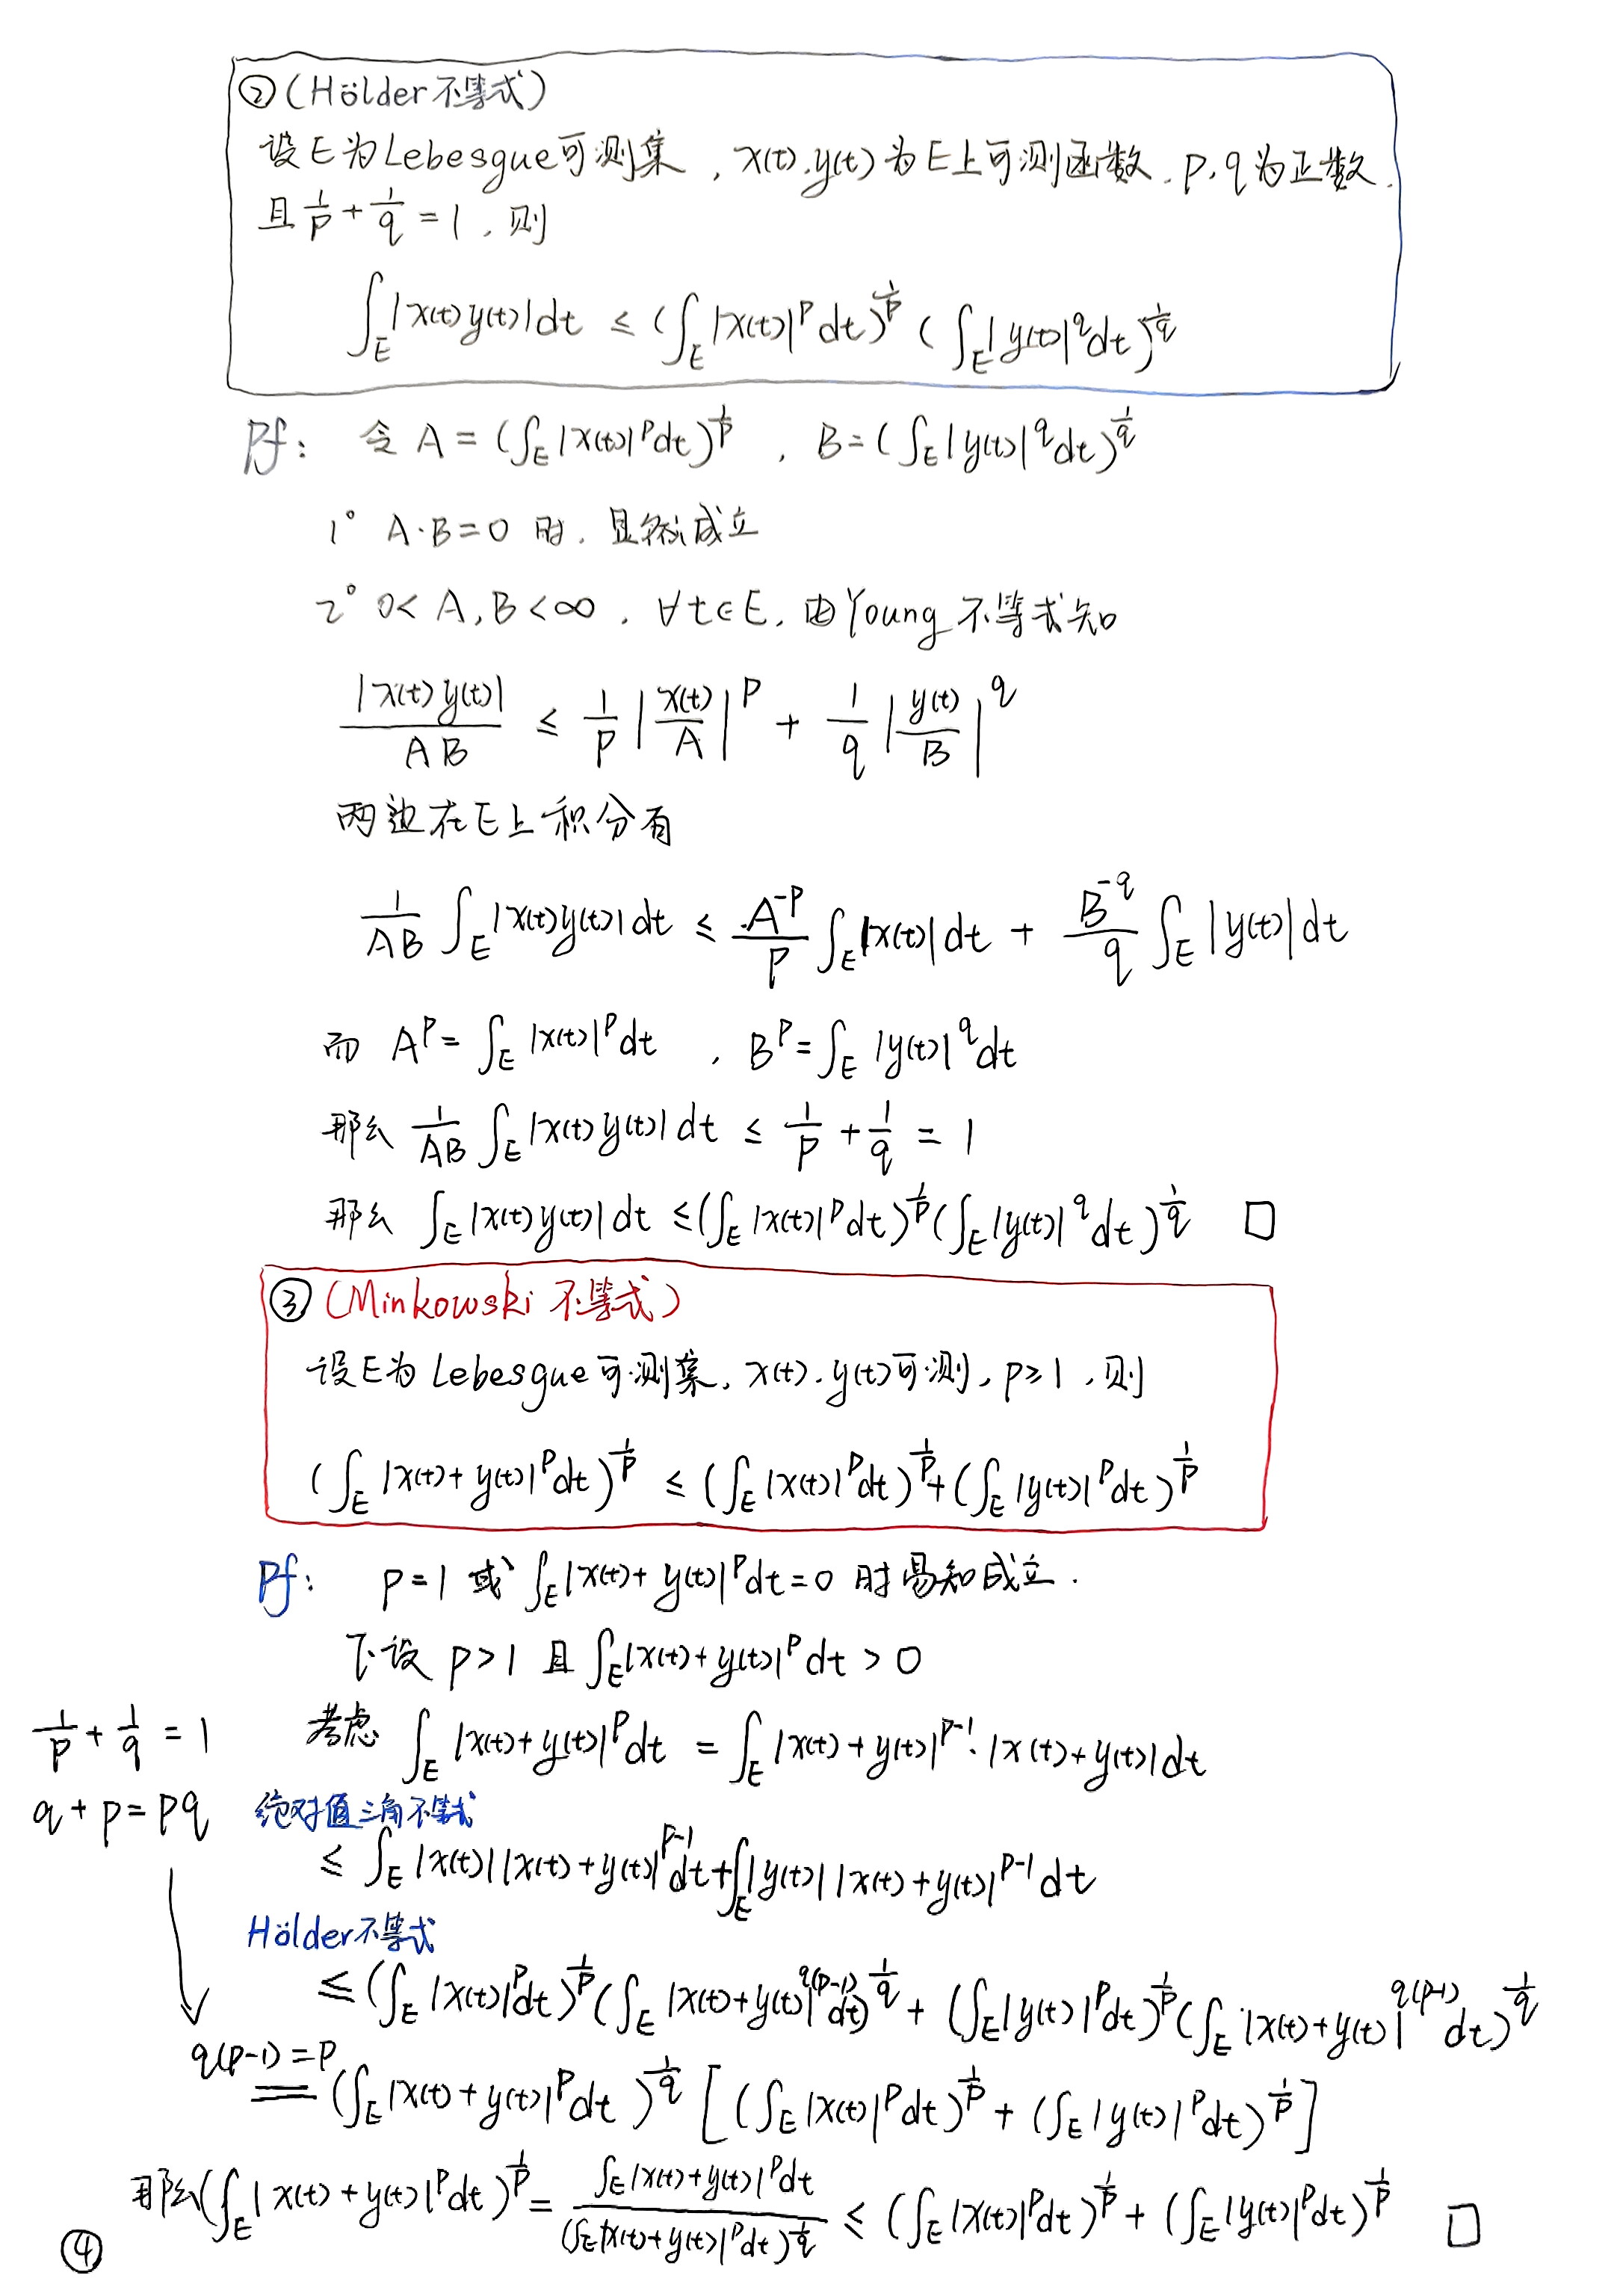 ②(Hölder不等式)
设E为Lebesgue可测集，x(t),y(t)为E上可测函数，p,q为正数，
且 1/p + 1/q = 1，则
∫_E |x(t)y(t)|dt ≤ (∫_E |x(t)|^p dt)^{1/p} (∫_E |y(t)|^q dt)^{1/q}
Pf: 令 A = (∫_E |x(t)|^p dt)^{1/p}，B = (∫_E |y(t)|^q dt)^{1/q}
1° A·B=0 时，显然成立
2° 0<A,B<∞，∀t∈E，由Young不等式知
|x(t)y(t)|/AB ≤ 1/p |x(t)/A|^p + 1/q |y(t)/B|^q
两边在E上积分有
1/AB ∫_E |x(t)y(t)|dt ≤ A^{-p}/p ∫_E |x(t)|dt + B^{-q}/q ∫_E |y(t)|dt
而 A^p = ∫_E |x(t)|^p dt，B^p = ∫_E |y(t)|^q dt
那么 1/AB ∫_E |x(t)y(t)|dt ≤ 1/p + 1/q = 1
那么 ∫_E |x(t)y(t)|dt ≤ (∫_E |x(t)|^p dt)^{1/p} (∫_E |y(t)|^q dt)^{1/q} □
③(Minkowski 不等式)
设E为Lebesgue可测集，x(t),y(t)可测，p≥1，则
(∫_E |x(t)+y(t)|^p dt)^{1/p} ≤ (∫_E |x(t)|^p dt)^{1/p} + (∫_E |y(t)|^p dt)^{1/p}
Pf: p=1 或 ∫_E |x(t)+y(t)|^p dt=0 时易知成立.
下设 p>1 且 ∫_E |x(t)+y(t)|^p dt > 0
1/p + 1/q = 1
考虑 ∫_E |x(t)+y(t)|^p dt = ∫_E |x(t)+y(t)|^{p-1}·|x(t)+y(t)|dt
q+p=pq
绝对值三角不等式
≤ ∫_E |x(t)||x(t)+y(t)|^{p-1} dt + ∫_E |y(t)||x(t)+y(t)|^{p-1} dt
Hölder不等式
≤ (∫_E |x(t)|^p dt)^{1/p} (∫_E |x(t)+y(t)|^{q(p-1)} dt)^{1/q} + (∫_E |y(t)|^p dt)^{1/p} (∫_E |x(t)+y(t)|^{q(p-1)} dt)^{1/q}
q(p-1)=p
= (∫_E |x(t)+y(t)|^p dt)^{1/q} [(∫_E |x(t)|^p dt)^{1/p} + (∫_E |y(t)|^p dt)^{1/p}]
那么 (∫_E |x(t)+y(t)|^p dt)^{1/p} = ∫_E |x(t)+y(t)|^p dt / (∫_E |x(t)+y(t)|^p dt)^{1/q} ≤ (∫_E |x(t)|^p dt)^{1/p} + (∫_E |y(t)|^p dt)^{1/p} □
④